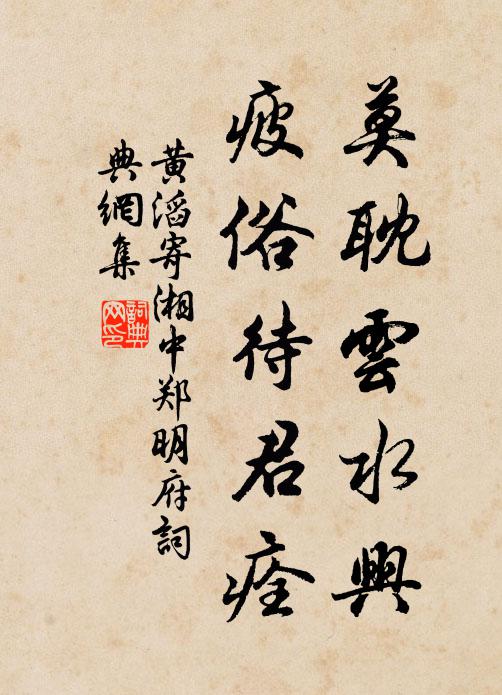 莫耽雲水興
疲俗待君痊
黄滔寄湘中郑明府詞
典網集
詞典
网印